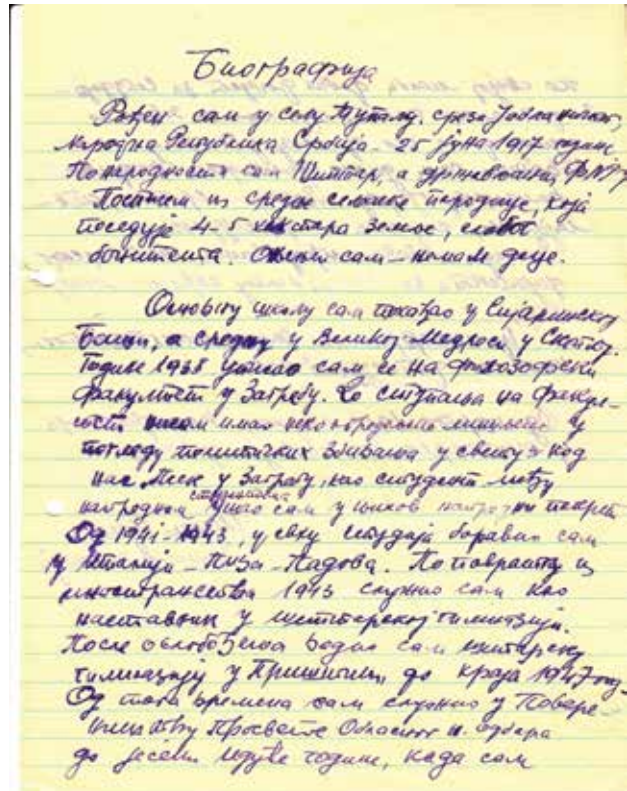 Биографија
Рођен сам у селу Тупалу, среза Јабланичког,
Народна Република Србија - 25 јуна 1917 године
По народности сам Шиптар, а држављанин ФНРЈ
Потичем из средње сељачке породице, која
поседује 4-5 хектара земље, слабог
бонитета. Ожењен сам - немам деце.
Основну школу сам похађао у Сијаринској
Бањи, а средњу у Великој Медреси у Скопљу.
Године 1938 уписао сам се на филозофски
факултет у Загребу. До ступања на факул-
тет нисам имао неко одређено мишљење у
погледу политичких збивања у свету и код
нас. Тек у Загребу, као студент међу
напредним студентима ушао сам у њихов напредни покрет
Од 1941-1943, у току студија боравио сам
у Италији - Пиза - Падова. По повратку из
иностранства 1943 служио сам као
наставник у шиптарској гимназији.
После ослобођења водио сам шиптарску
гимназију у Приштини до краја 1947 год.
Од тога времена сам служио у Повере-
ништву Просвете Обласног н. одбора
до јесени идуће године, када сам